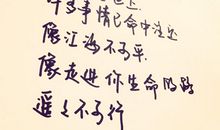 许多事情已命中注定
像江海不可平
像走进你生命的路
遥遥不可行